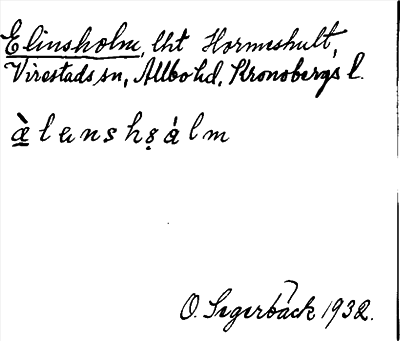 Elinsholm, lht Hormeshult,
Virestads sn, Allbo hd, Kronobergs l.
æ̀lenshớlm
O. Segerbäck 1932.